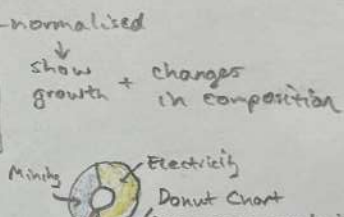 -normalised
↓
show + changes
growth in composition
Mining Electricity
Donut Chart